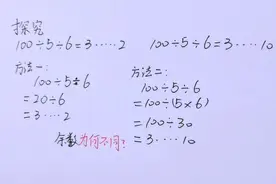 探究
100÷5÷6=3……2 100÷5÷6=3……10
方法一：
100÷5÷6
=20÷6
=3……2
方法二：
100÷5÷6
=100÷(5×6)
=100÷30
=3……10
余数为何不同？